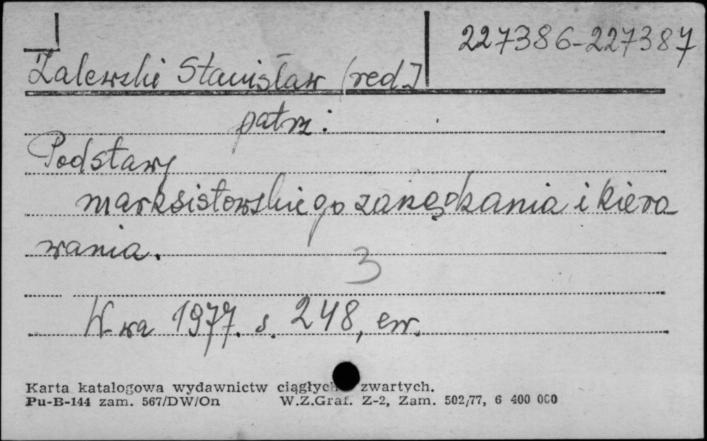 227386-227387
Zalewski Stanisław (red.]
patrz:
Podstawy
marksistowskiego zarządzania i kiero
wania.
3
W-wa 1977. s. 248, err.
Karta katalogowa wydawnictw ciągłych zwartych.
Pu-B-144 zam. 567/DW/On W.Z.Graf. Z-2, Zam. 502/77, 6 400 000